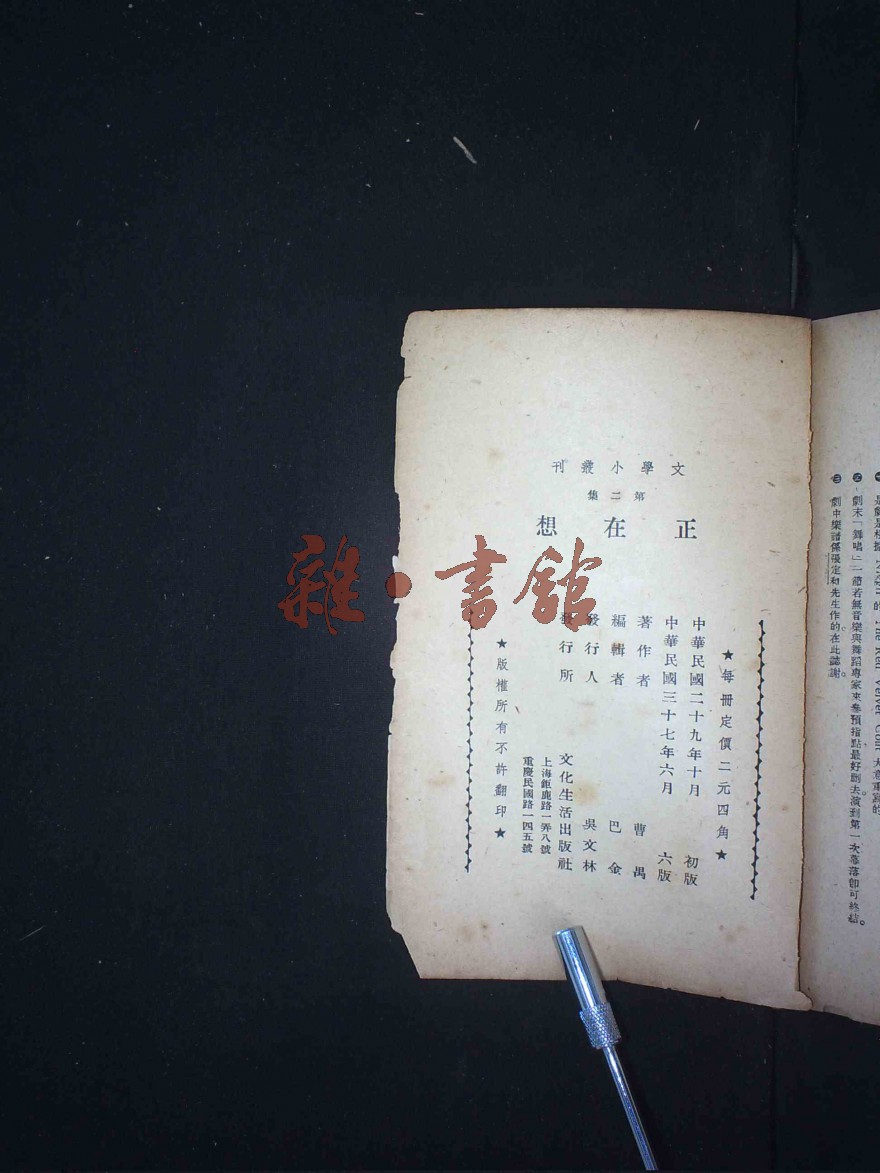 是劇是根據
的 The Red Velvet Coat 大意重寫的
劇末「舞唱」一節若無音樂與舞蹈專家來參預指點最好刪去演到第一次幕落卽可終結。
劇中樂譜係張定和先生作的在此誌謝。
文學小叢刊
第二集
正在想
★每冊定價二元四角★
中華民國二十九年十月 初版
中華民國三十七年六月 六版
著作者 曹禺
編輯者 巴金
發行人 吳文林
發行所 文化生活出版社
上海鉅鹿路一弄八號
重慶民國路一四五號
★版權所有不許翻印★
雜·書館